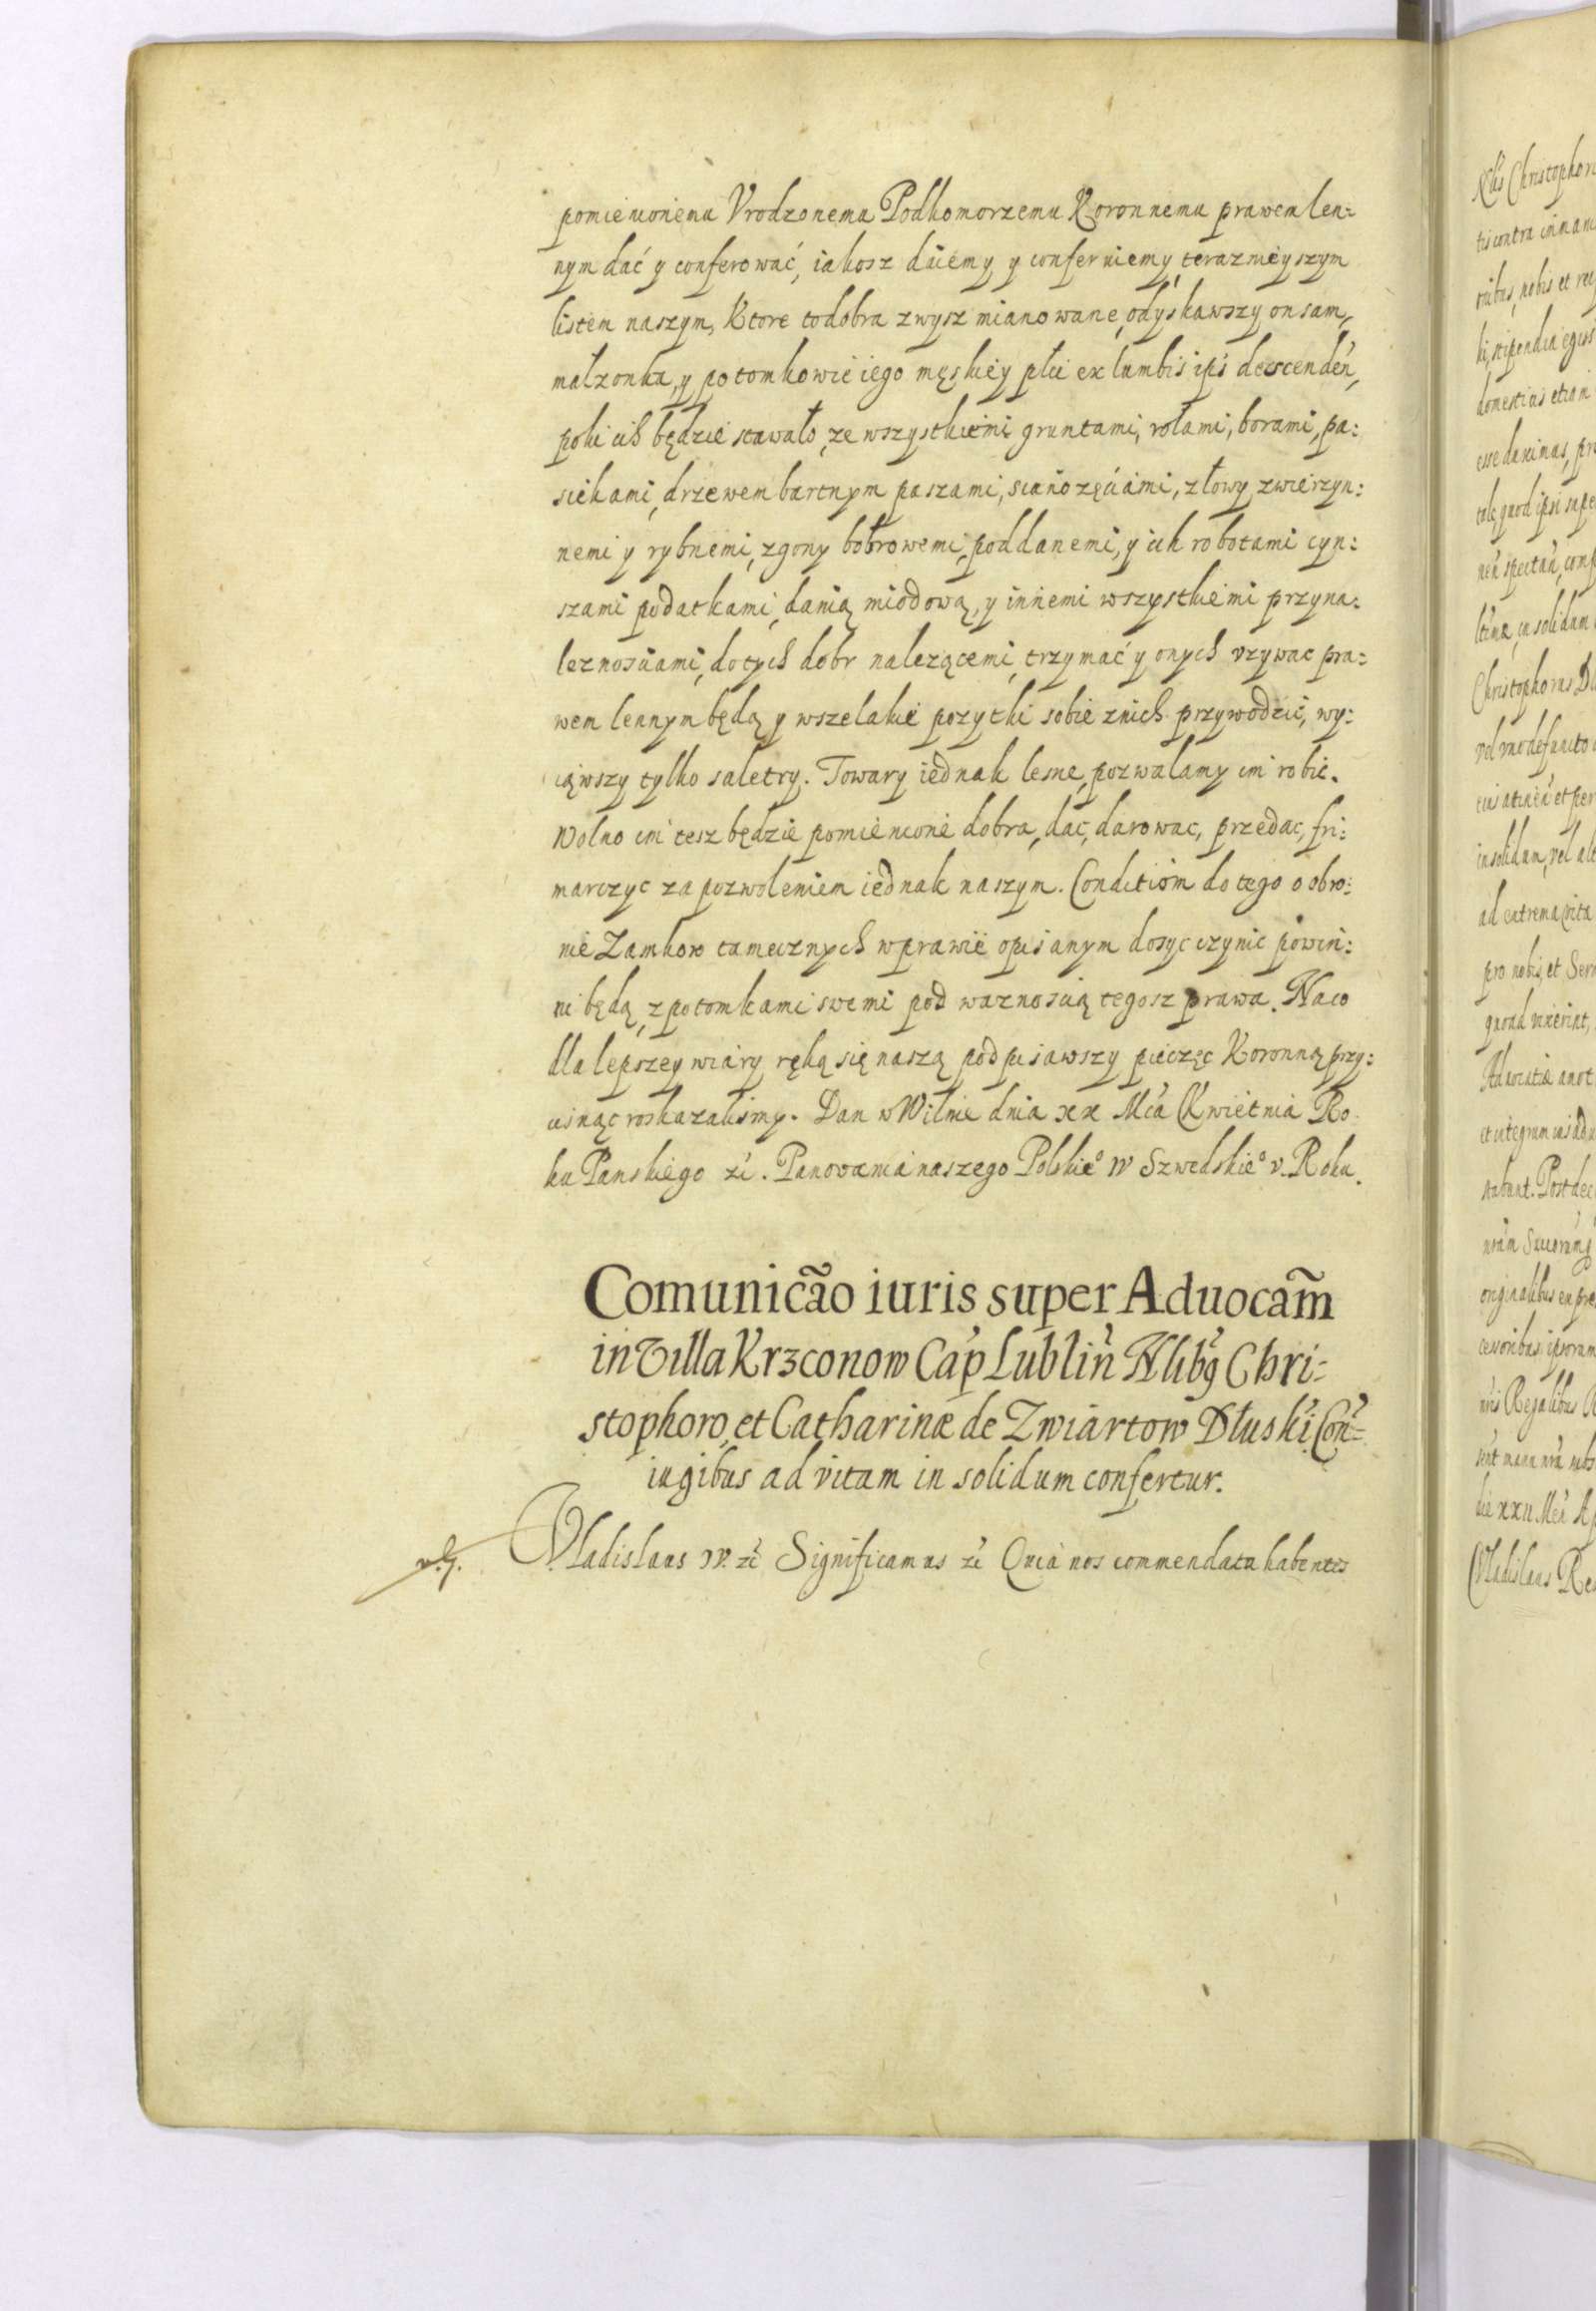 pomienionemu Vrodzonemu Podkomorzemu Koronnemu prawem len:
nym dać y conferować, iakosz daiemy y conferuiemy terazmieyszym
listem naszym, Ktore to dobra zwysz mianowane, odyskawszy on sam,
małzonka, y potomkowie iego męskiey płci ex lumbis ipś descendeń,
poki ich będzie stawało, ze wszystkiemi gruntami, rolami, borami, pa:
siekami, drzewem bartnym paszami, sianożęćiami, z łowy zwierzyn:
nemi y rybnemi, zgony bobrowemi, poddanemi, y ich robotami cyn:
szami podatkami, danią miodową, y innemi wszystkiemi przyna:
leznosciami, do tych dobr nalezącemi, trzymać y onych vzywac pra:
wem lennym będą y wszelakie pozytki sobie znich przywodzić, wy:
iąwszy tylko saletry. Towary iednak lesne, pozwalamy im robic.
Wolno im tesz będzie pomienione dobra, dac, darowac, przedac, fri:
marczyc za pozwoleniem iednak naszym. Conditiom do tego o obro:
nie Zamkow tamecznych w prawie opisanym dosyc czynic powin:
ni będą, z potomkami swemi pod waznoscią tegosz prawa. Na co
dla lepszey wiary ręką się naszą podpisawszy pieczęc Koronną przy:
cisnąc roskazalismy. Dan w Wilnie dnia xx Mca Kwietnia Ro
ku Panskiego zć. Panowania naszego Polskieº IV Szwedskieº v. Roku.
Comunicão iuris super Aduocam̃
in Villa Krzconow Cap̛ Lublin̛ Nlibꝰ Chri:
stophoro, et Catharinæ de Zwiartow Dłuski Con̛:
iugibus ad vitam in solidum confertur.
Vladislaus IV. zć Significamus zć Quia nos commendata habentes